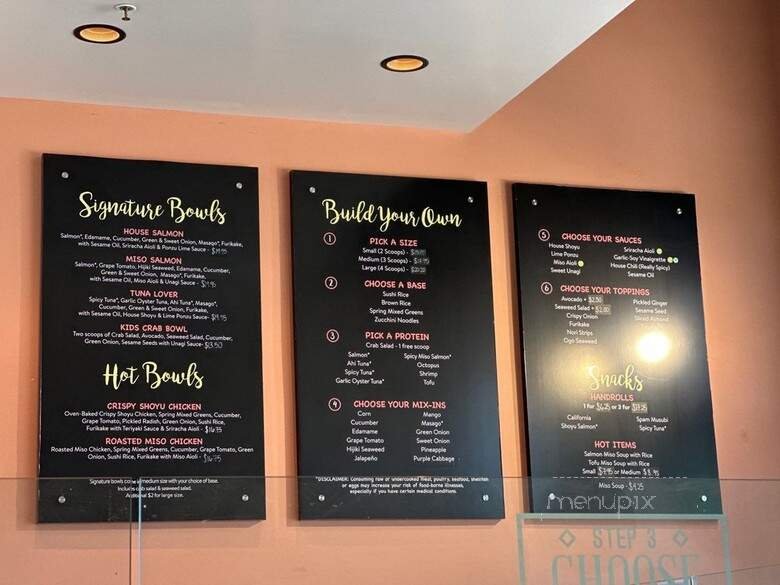 Signature Bowls
HOUSE SALMON
Salmon*, Edamame, Cucumber, Green & Sweet Onion, Masago*, Furikake,
with Sesame Oil, Sriracha Aioli & Ponzu Lime Sauce -
MISO SALMON
Salmon*, Grape Tomato, Hijiki Seaweed, Edamame, Cucumber,
Green & Sweet Onion, Masago*, Furikake,
with Sesame Oil, Miso Aioli & Unagi Sauce -
TUNA LOVER
Spicy Tuna*, Garlic Oyster Tuna, Ahi Tuna*, Masago*,
Cucumber, Green & Sweet Onion, Furikake,
with Sesame Oil, House Shoyu & Lime Ponzu Sauce-
KIDS CRAB BOWL
Two scoops of Crab Salad, Avocado, Seaweed Salad, Cucumber,
Green Onion, Sesame Seeds with Unagi Sauce- $13.50
Hot Bowls
CRISPY SHOYU CHICKEN
Oven-Baked Crispy Shoyu Chicken, Spring Mixed Greens, Cucumber,
Grape Tomato, Pickled Radish, Green Onion, Sushi Rice,
Furikake with Teriyaki Sauce & Sriracha Aioli - $16.75
ROASTED MISO CHICKEN
Roasted Miso Chicken, Spring Mixed Greens, Cucumber, Grape Tomato, Green
Onion, Sushi Rice, Furikake with Miso Aioli - $16.75
Signature bowls come in medium size with your choice of base.
Includes crab salad & seaweed salad.
Additional $2 for large size.
Build Your Own
1 PICK A SIZE
Small (2 Scoops) -
Medium (3 Scoops) -
Large (4 Scoops) -
2 CHOOSE A BASE
Sushi Rice
Brown Rice
Spring Mixed Greens
Zucchini Noodles
3 PICK A PROTEIN
Crab Salad - 1 free scoop
Salmon* Spicy Miso Salmon*
Ahi Tuna* Octopus
Spicy Tuna* Shrimp
Garlic Oyster Tuna* Tofu
4 CHOOSE YOUR MIX-INS
Corn Mango
Cucumber Masago*
Edamame Green Onion
Grape Tomato Sweet Onion
Hijiki Seaweed Pineapple
Jalapeño Purple Cabbage
*DISCLAIMER: Consuming raw or undercooked meat, poultry, seafood, shellfish
or eggs may increase your risk of food-borne illnesses,
especially if you have certain medical conditions.
5 CHOOSE YOUR SAUCES
House Shoyu Sriracha Aioli
Lime Ponzu Garlic-Soy Vinaigrette
Miso Aioli House Chili (Really Spicy)
Sweet Unagi Sesame Oil
6 CHOOSE YOUR TOPPINGS
Avocado + $2.50 Pickled Ginger
Seaweed Salad + Sesame Seed
Crispy Onion Sliced Almond
Furikake
Nori Strips
Ogo Seaweed
Snacks
HANDROLLS
1 for $6.25 or 2 for
California Spam Musubi
Shoyu Salmon* Spicy Tuna*
HOT ITEMS
Salmon Miso Soup with Rice
Tofu Miso Soup with Rice
Small or Medium
Miso Soup - $4.25
menupix
STEP 3
CHOOSE